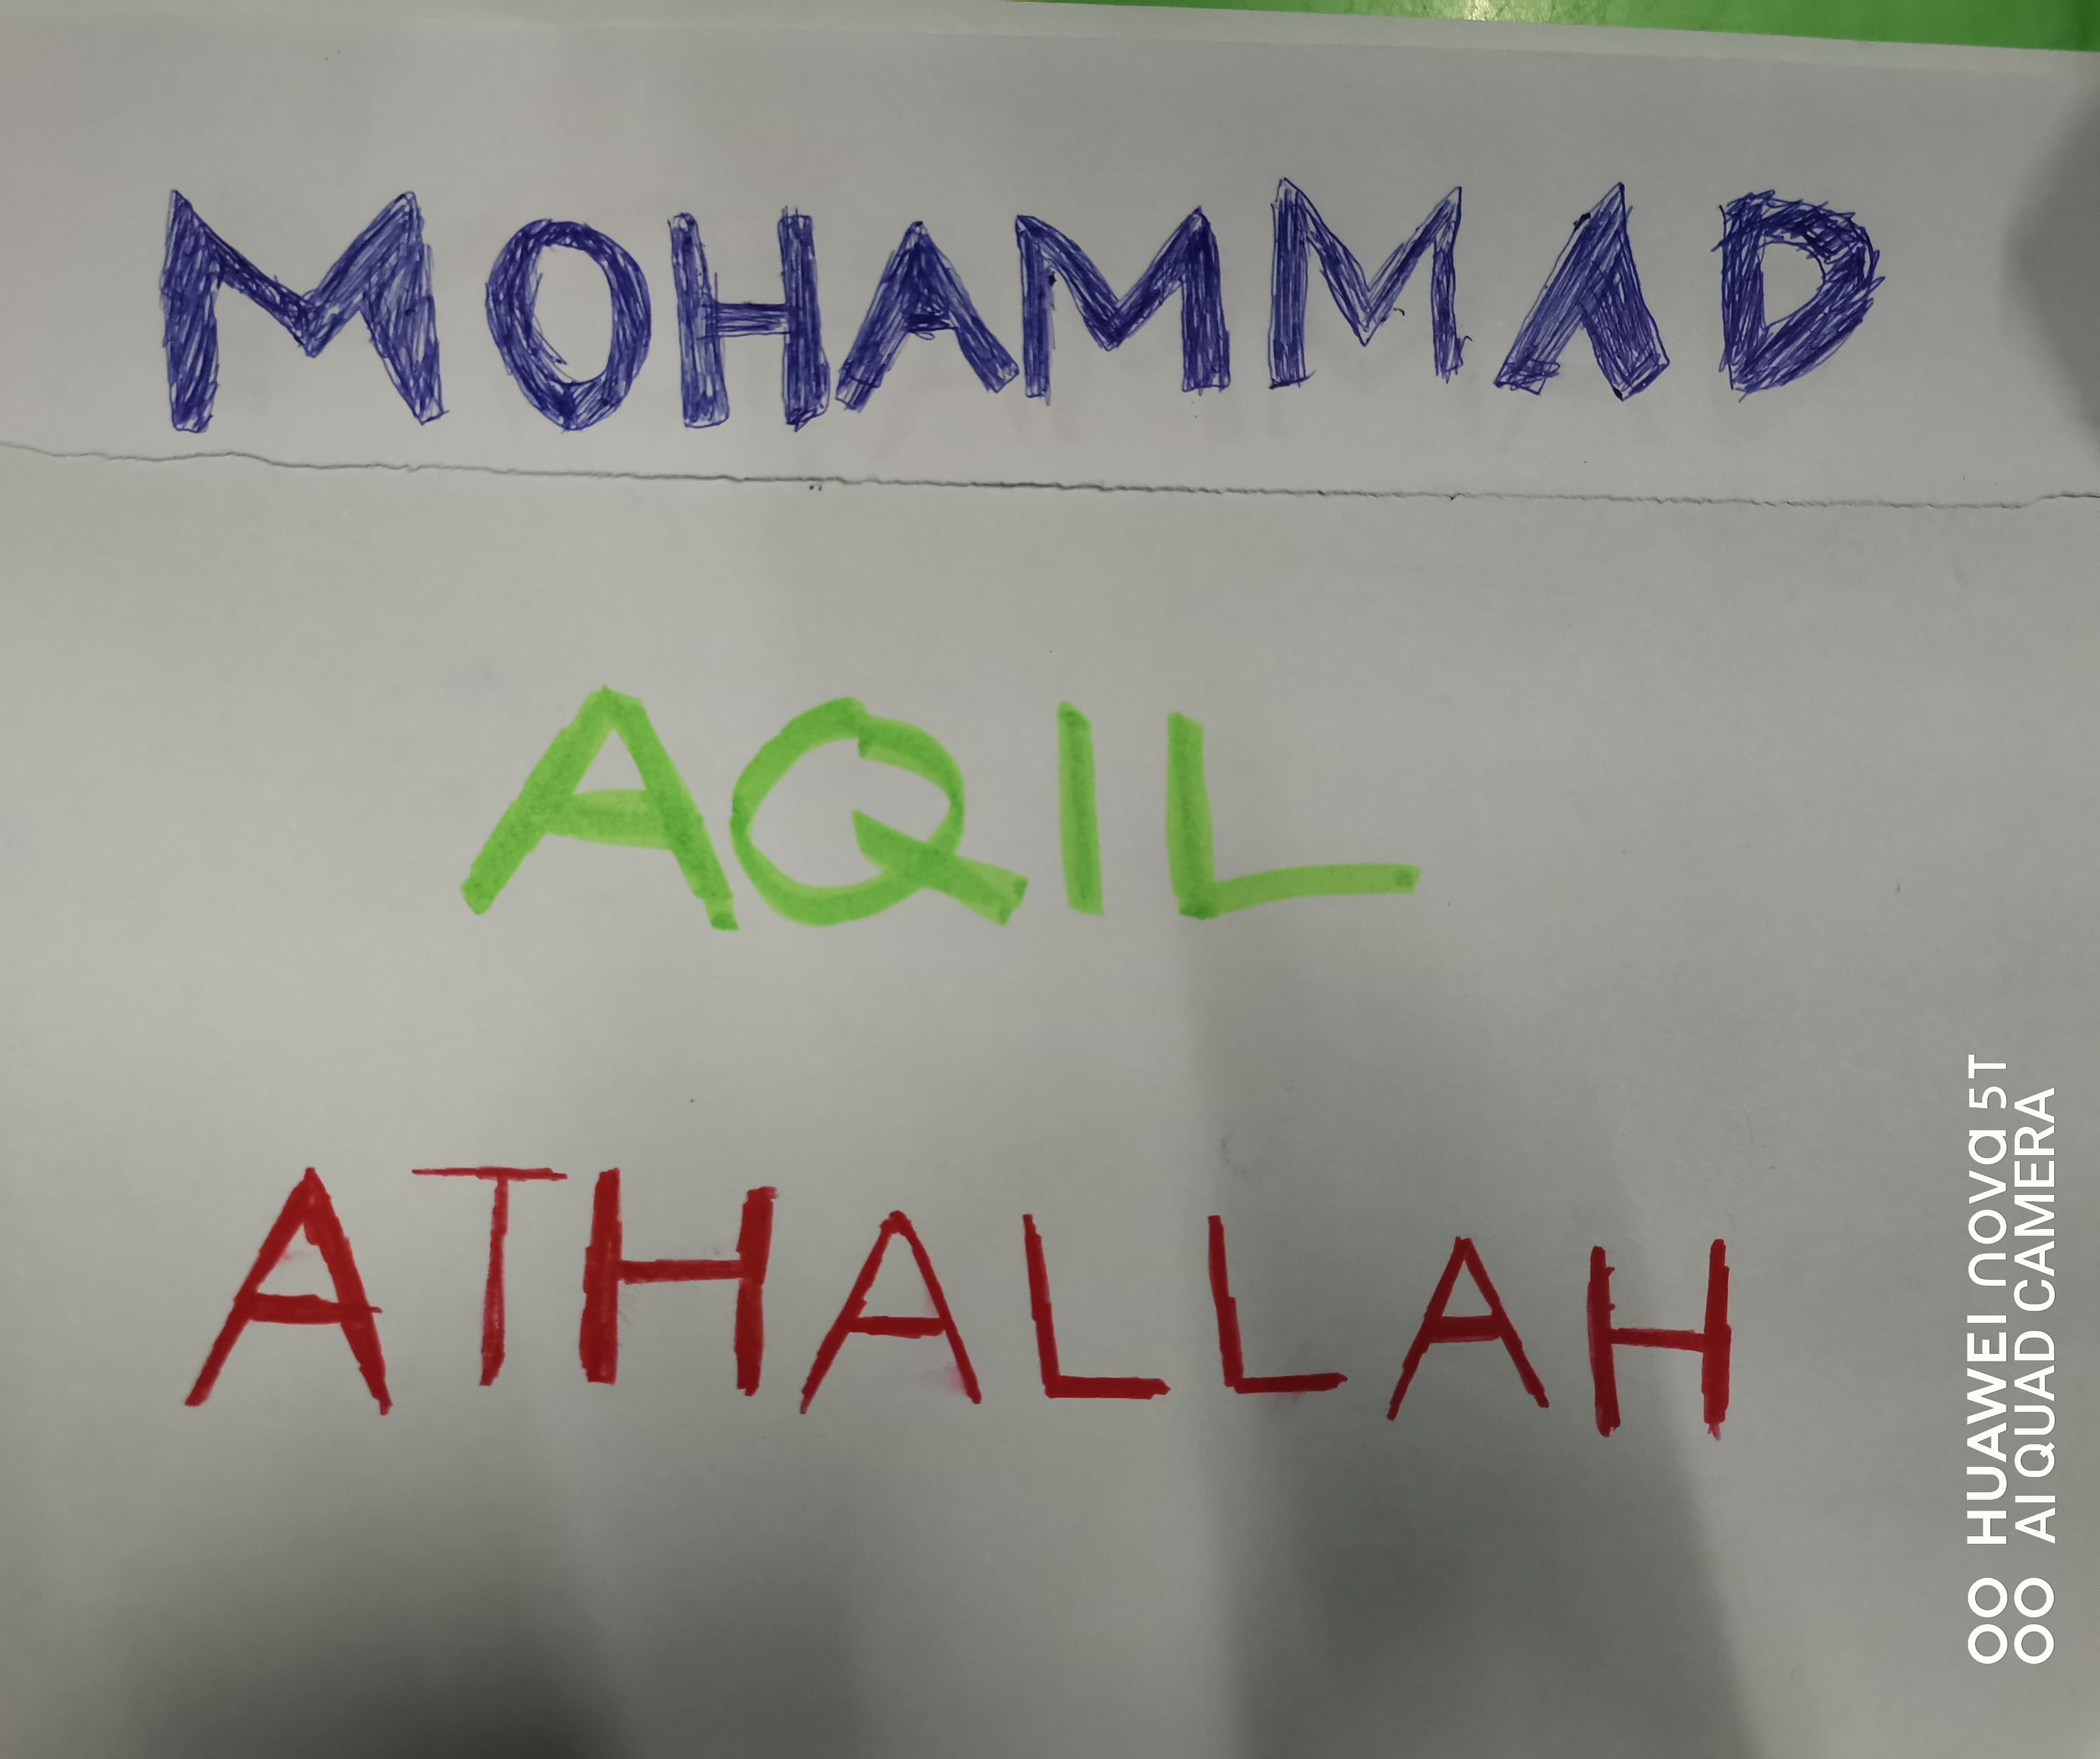 MOHAMMAD
AQIL
ATHALLAH
HUAWEI nova 5T
AI QUAD CAMERA